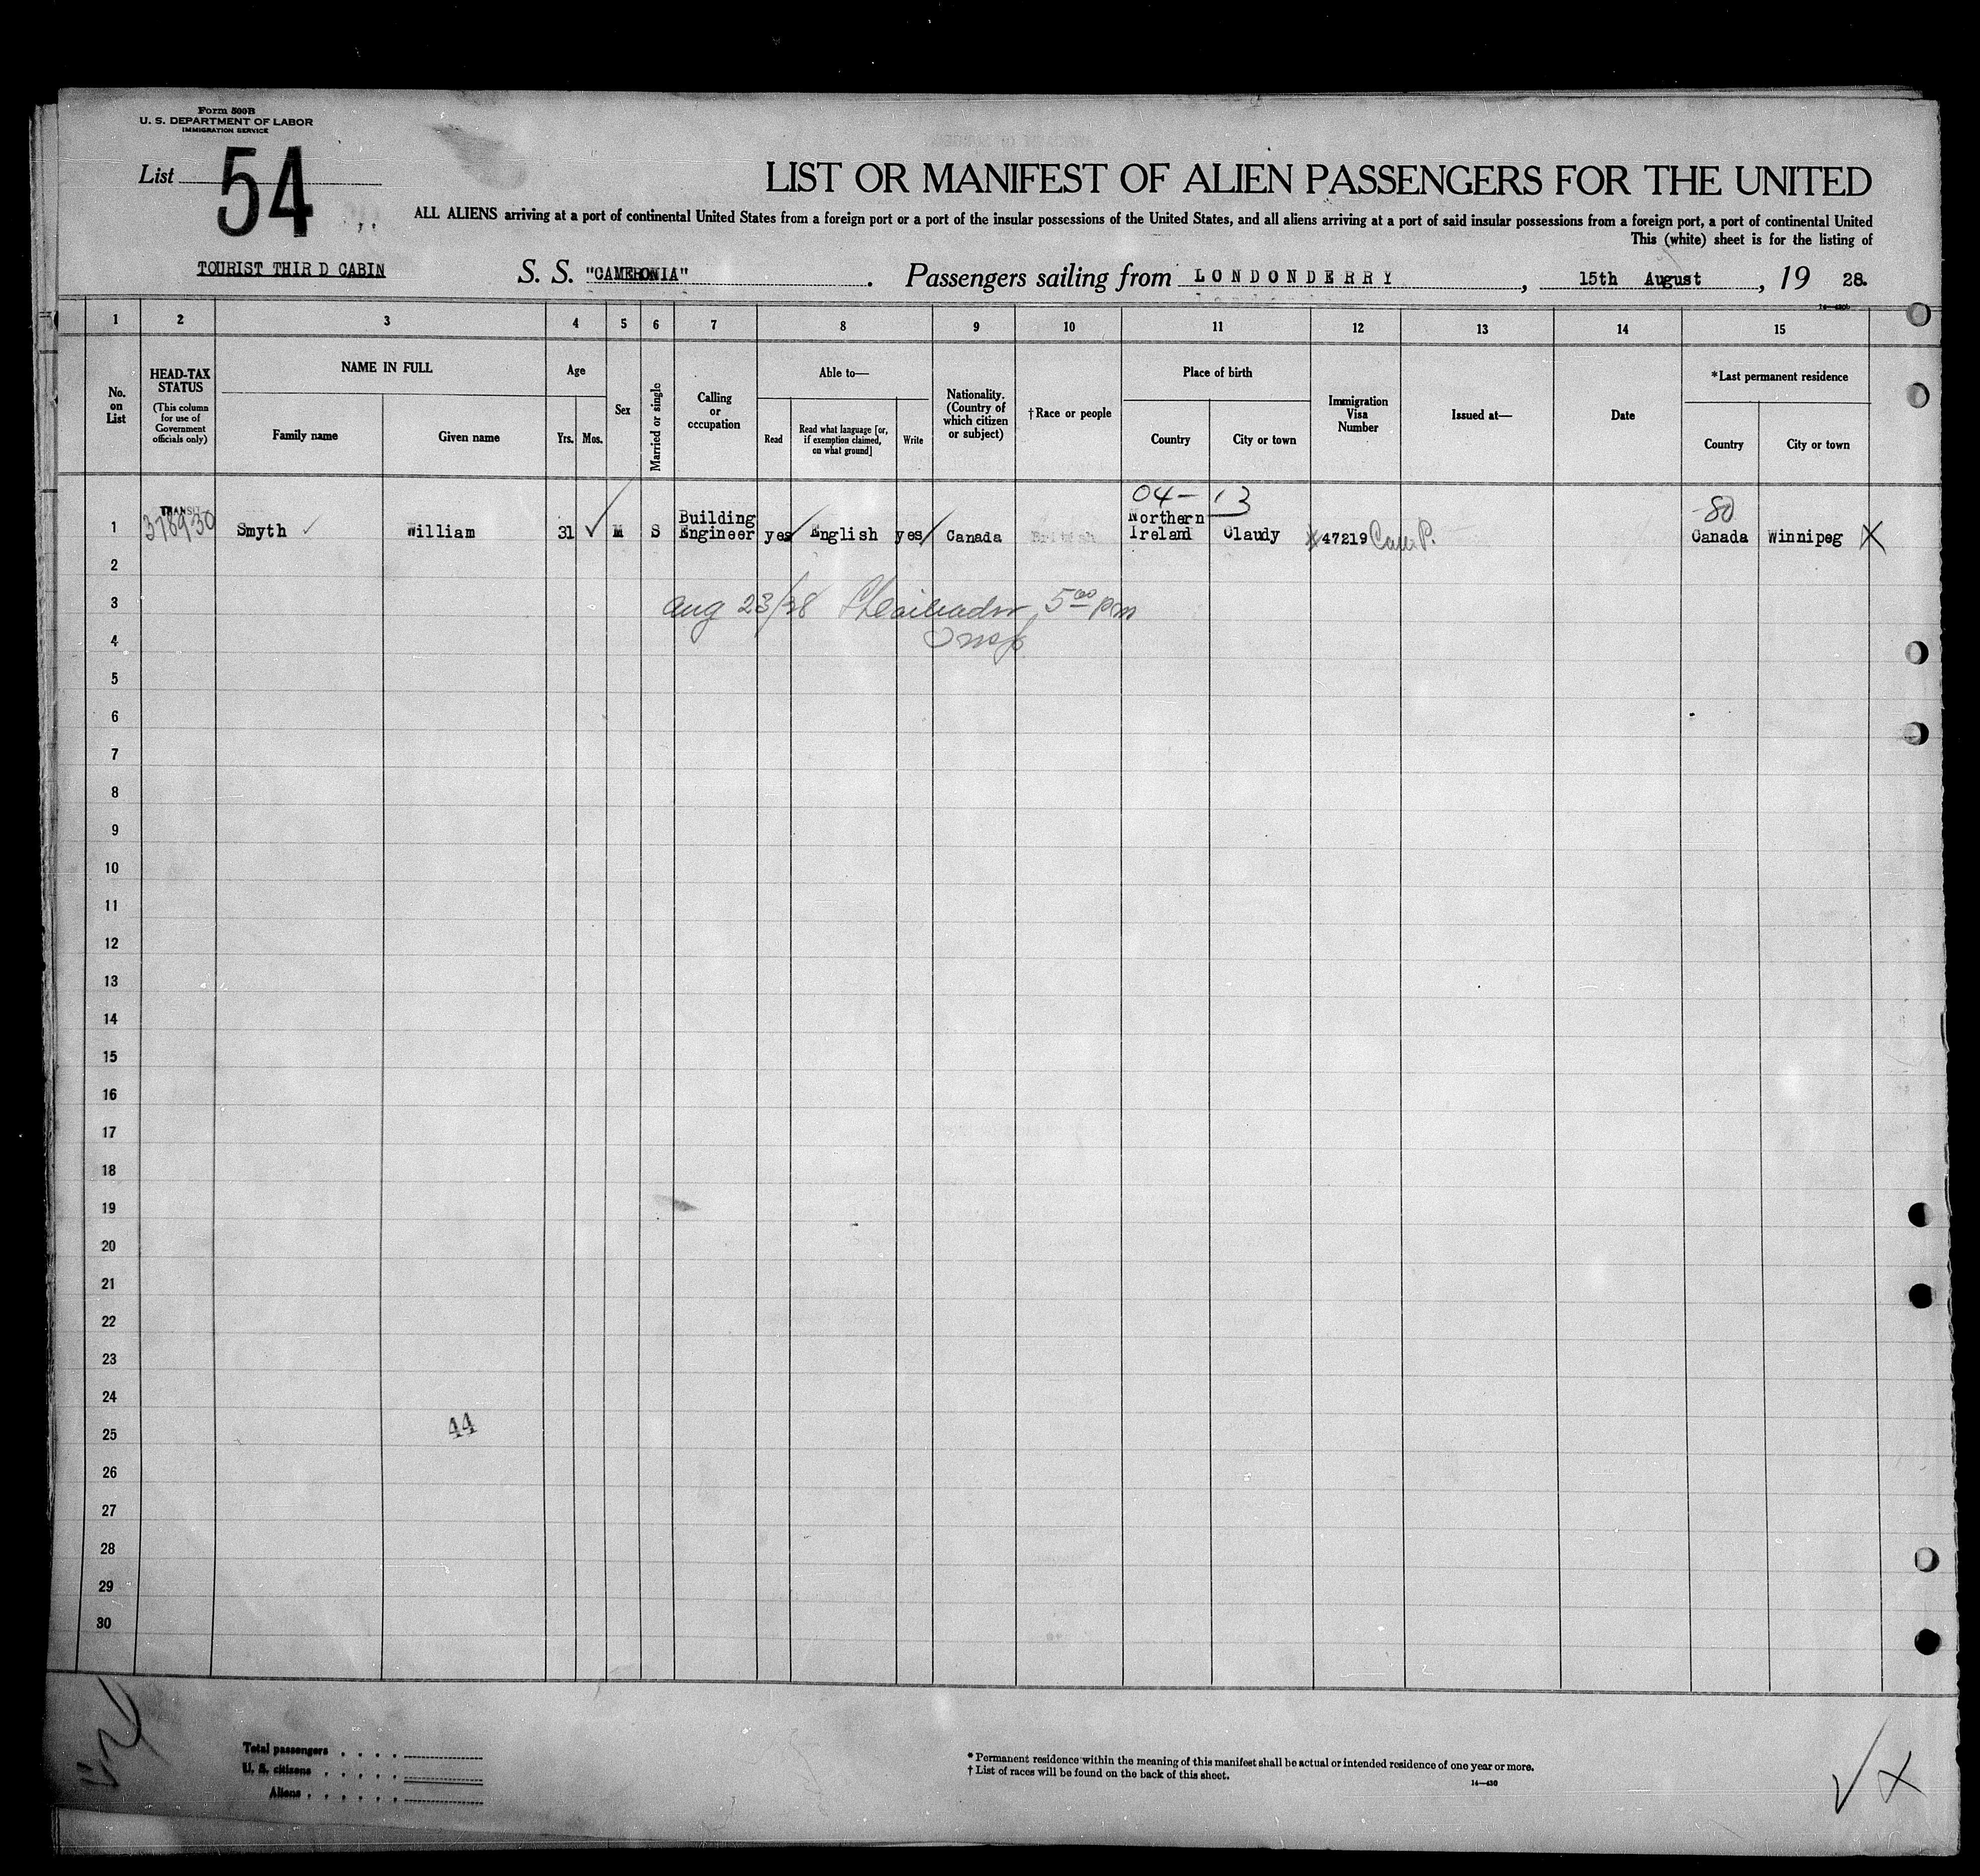 Form 500B
U. S. DEPARTMENT OF LABOR
IMMIGRATION SERVICE
List 54
LIST OR MANIFEST OF ALIEN PASSENGERS FOR THE UNITED
ALL ALIENS arriving at a port of continental United States from a foreign port or a port of the insular possessions of the United States, and all aliens arriving at a port of said insular possessions from a foreign port, a port of continental United
This (white) sheet is for the listing of
TOURIST THIRD CABIN S. S. "CAMERONIA" . Passengers sailing from LONDONDERRY , 15th August , 19 28.
1 2 3 4 5 6 7 8 9 10 11 12 13 14 15
No. on List
HEAD-TAX STATUS (This column for use of Government officials only)
NAME IN FULL
Family name Given name
Age
Yrs. Mos.
Sex
Married or single
Calling or occupation
Able to—
Read
Read what language [or, if exemption claimed, on what ground]
Write
Nationality. (Country of which citizen or subject)
†Race or people
Place of birth
Country City or town
Immigration Visa Number
Issued at—
Date
*Last permanent residence
Country City or town
04- 13
80
TRANSIT
1 378930 Smyth William 31 M S Building Engineer yes English yes Canada Northern Ireland Claudy 47219 Canada Winnipeg
2
3 Aug 23/28 5 00 pm
4 Insp
5
6
7
8
9
10
11
12
13
14
15
16
17
18
19
20
21
22
23
24
25 44
26
27
28
29
30
Total passengers
U. S. citizens
Aliens
* Permanent residence within the meaning of this manifest shall be actual or intended residence of one year or more.
† List of races will be found on the back of this sheet.
14—430